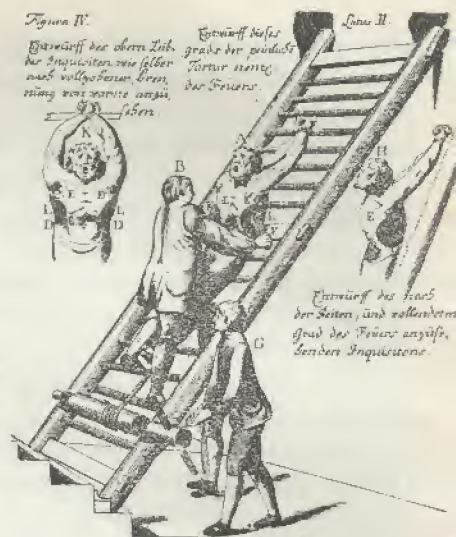 Figura IV.
Entwurff des obern Leib.
des Inquisiten wie selber
nach vollzobener bren
nung von vorne anzu
sehen.
Entwurff dieses
grads der peinlichē
Tortur nemē
des Feuers.
Latus II.
K
E E
L L
D D
A
B
E K
L
H
E
Entwurff des nach
der Seiten, und vollendetem
grad des Feuers anzuse,
henden Inquisitens.
G